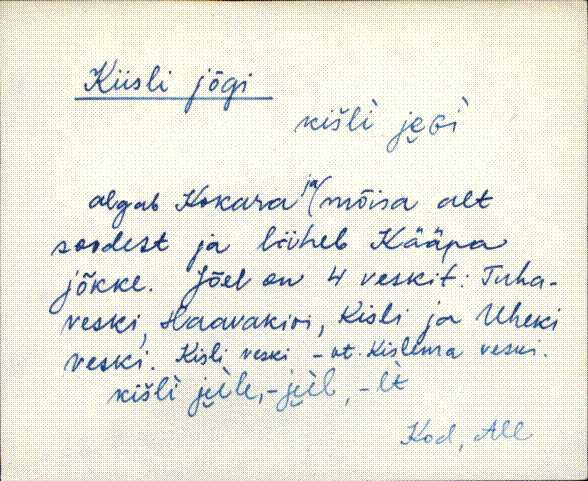 Kiisli jõgi
kišlì je̮Gì
algab Kokara ja (mõisa alt
soodest ja läheb Kääpa
jõkke. Jõel on 4 veskit: Tuha-
veski, Haavakivi, Kisli ja Uheki
veski. Kisli veski – vt. Kislema veski.
kišlì je̮ìle, -je̮ìl, -lt
Kod, All